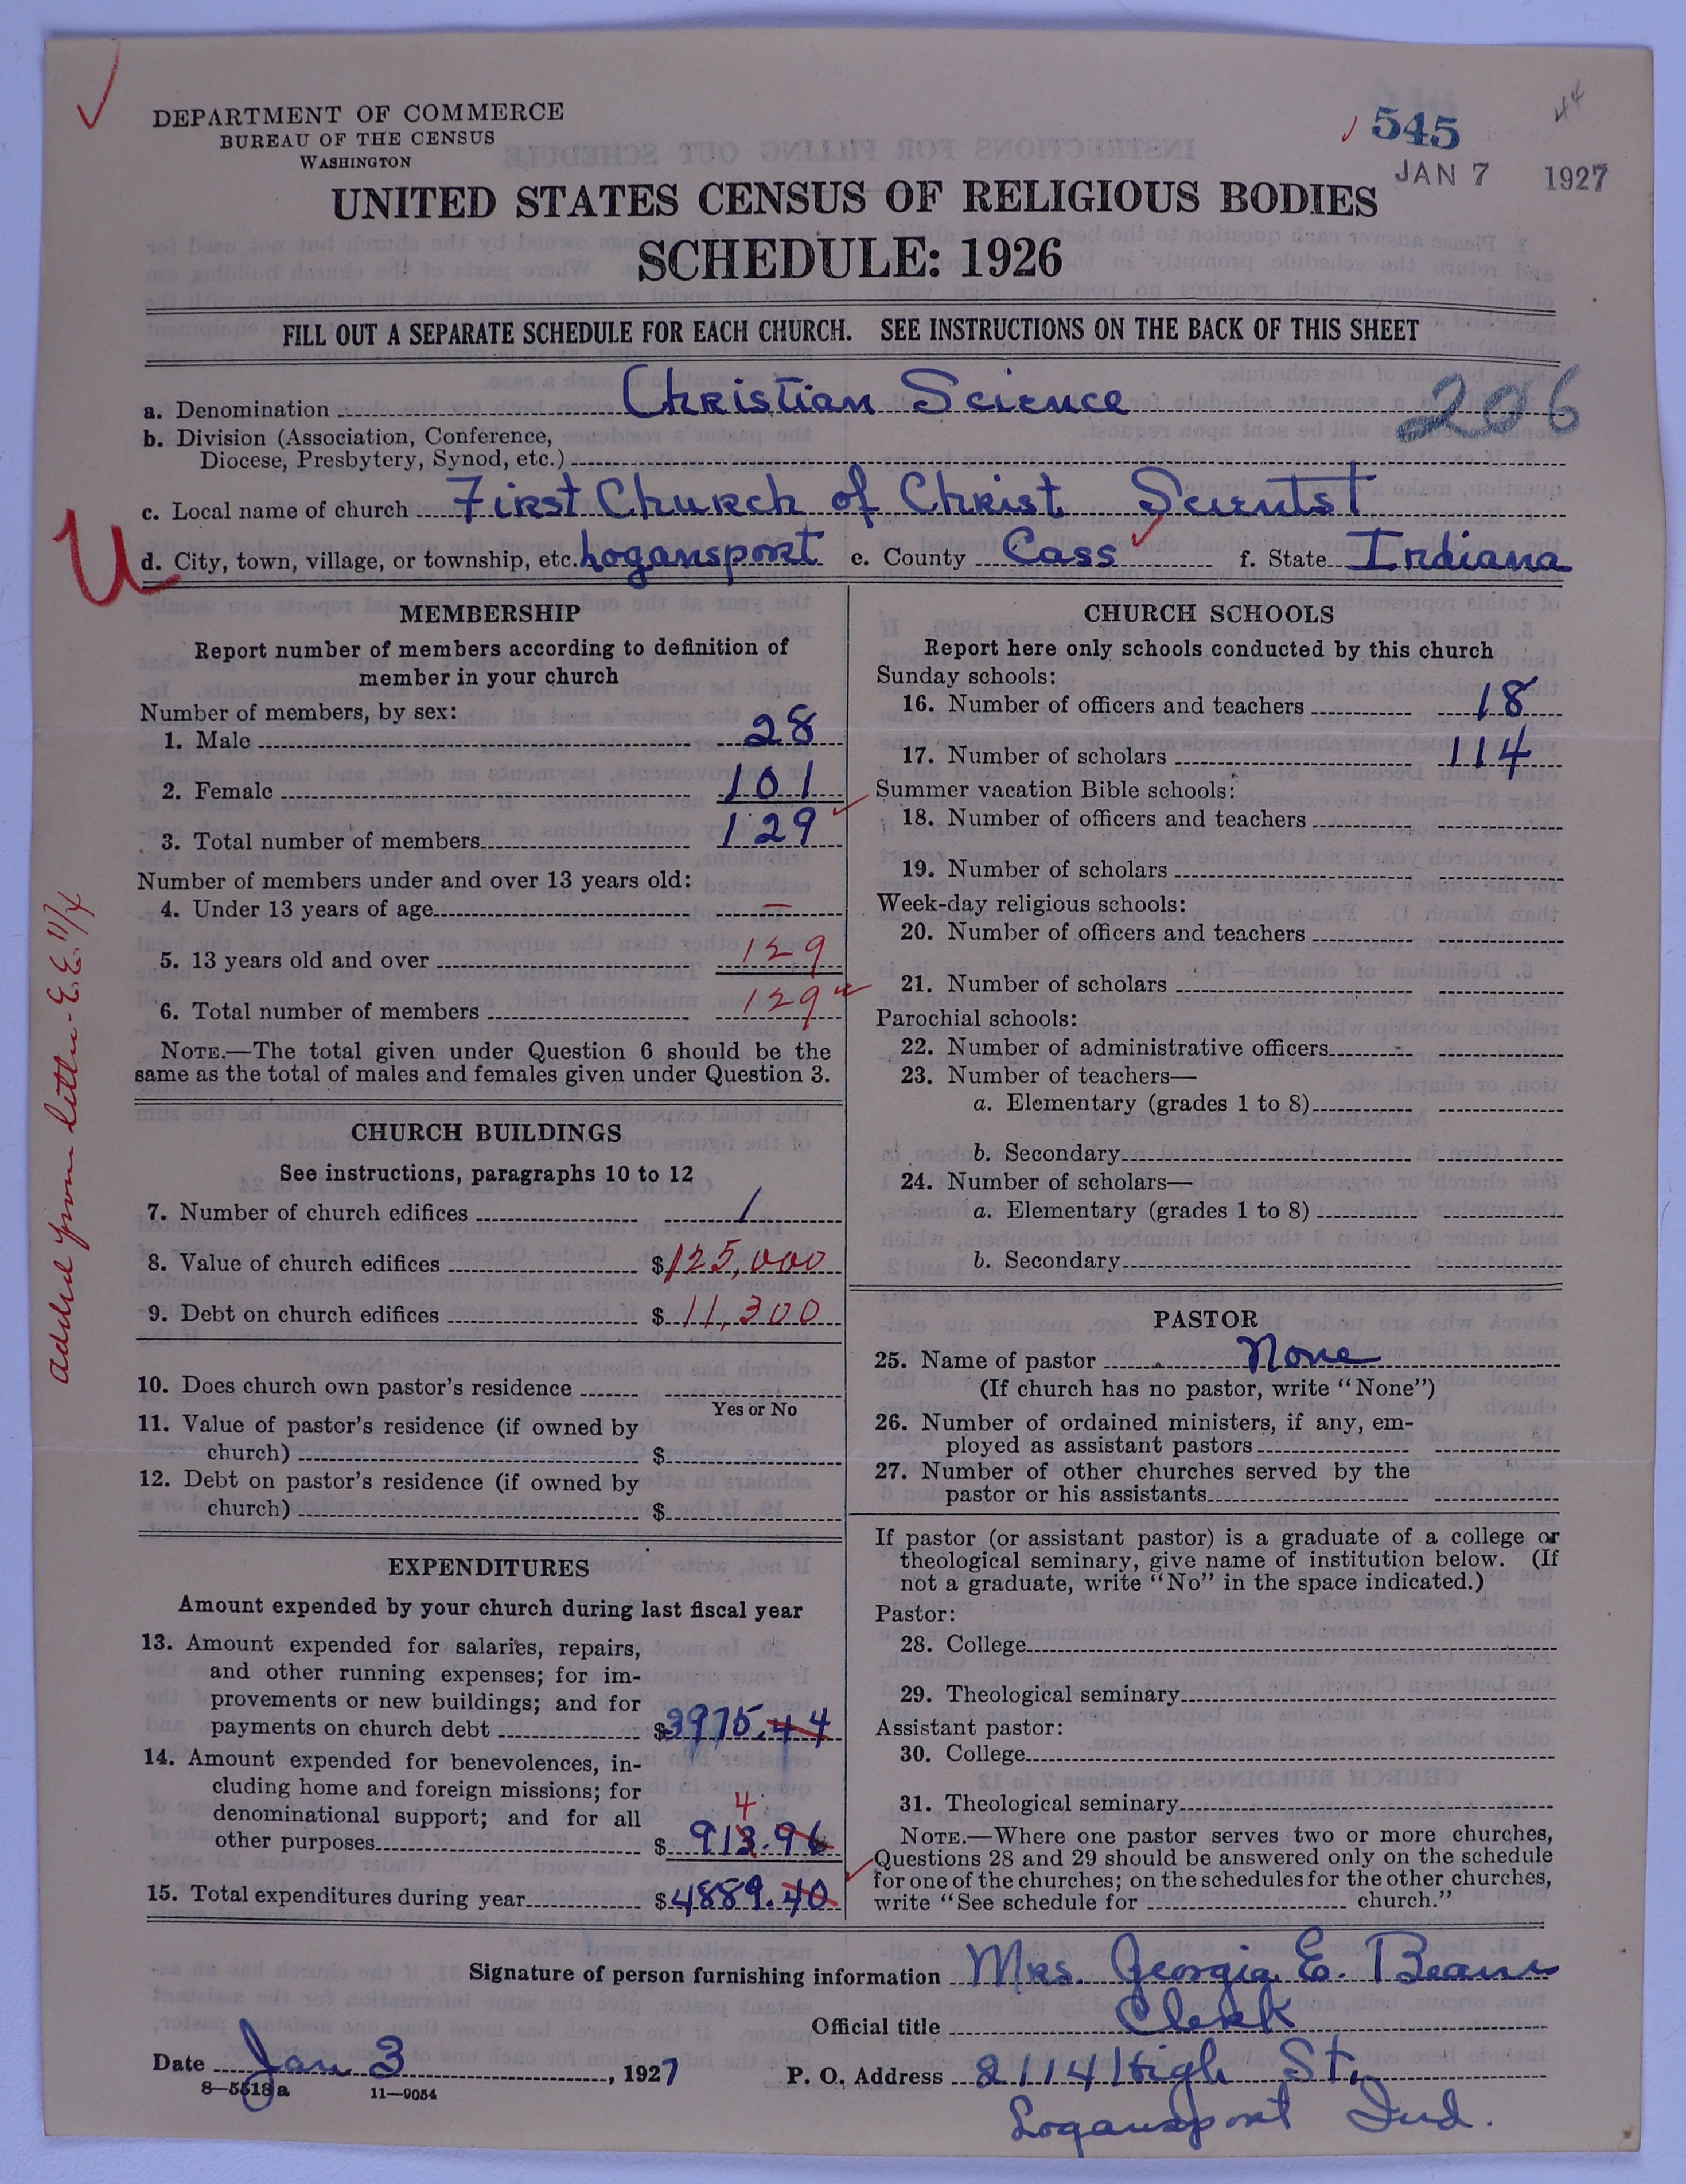 DEPARTMENT OF COMMERCE
BUREAU OF THE CENSUS
WASHINGTON
545
44
JAN 7 1927
UNITED STATES CENSUS OF RELIGIOUS BODIES
SCHEDULE: 1926
FILL OUT A SEPARATE SCHEDULE FOR EACH CHURCH. SEE INSTRUCTIONS ON THE BACK OF THIS SHEET
a. Denomination Christian Science
206
b. Division (Association, Conference,
Diocese, Presbytery, Synod, etc.)
c. Local name of church First Church of Christ Scientist
U
d. City, town, village, or township, etc. Logansport e. County Cass f. State Indiana
MEMBERSHIP
Report number of members according to definition of
member in your church
Number of members, by sex:
1. Male 28
2. Female 101
3. Total number of members 129
Number of members under and over 13 years old:
4. Under 13 years of age –
5. 13 years old and over 129
6. Total number of members 129
NOTE.—The total given under Question 6 should be the
same as the total of males and females given under Question 3.
Added from letter - E.E. 11/4
CHURCH BUILDINGS
See instructions, paragraphs 10 to 12
7. Number of church edifices 1
8. Value of church edifices $125,000
9. Debt on church edifices $11,300
10. Does church own pastor's residence
Yes or No
11. Value of pastor's residence (if owned by
church) $
12. Debt on pastor's residence (if owned by
church) $
EXPENDITURES
Amount expended by your church during last fiscal year
13. Amount expended for salaries, repairs,
and other running expenses; for im-
provements or new buildings; and for
payments on church debt $3975.44
14. Amount expended for benevolences, in-
cluding home and foreign missions; for
denominational support; and for all
4
other purposes $913.96
15. Total expenditures during year $4889.40
CHURCH SCHOOLS
Report here only schools conducted by this church
Sunday schools:
16. Number of officers and teachers 18
17. Number of scholars 114
Summer vacation Bible schools:
18. Number of officers and teachers
19. Number of scholars
Week-day religious schools:
20. Number of officers and teachers
21. Number of scholars
Parochial schools:
22. Number of administrative officers
23. Number of teachers—
a. Elementary (grades 1 to 8)
b. Secondary
24. Number of scholars—
a. Elementary (grades 1 to 8)
b. Secondary
PASTOR
25. Name of pastor None
(If church has no pastor, write "None")
26. Number of ordained ministers, if any, em-
ployed as assistant pastors
27. Number of other churches served by the
pastor or his assistants
If pastor (or assistant pastor) is a graduate of a college or
theological seminary, give name of institution below. (If
not a graduate, write "No" in the space indicated.)
Pastor:
28. College
29. Theological seminary
Assistant pastor:
30. College
31. Theological seminary
NOTE.—Where one pastor serves two or more churches,
Questions 28 and 29 should be answered only on the schedule
for one of the churches; on the schedules for the other churches,
write "See schedule for church."
Signature of person furnishing information Mrs. Georgia E. Beam
Official title Clerk
Date Jan 3, 1927 P. O. Address 2114 High St.
8—5518a 11—9054
Logansport Ind.